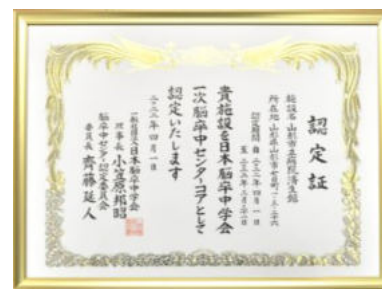 認定証
施設名 山形市立病院済生館
所在地 山形県山形市七日町一-三-二十六
認定期間 自 二〇二二年四月一日
貴施設を日本脳卒中学会
一次脳卒中センターコアとして
認定いたします
二〇二二年四月一日
一般社団法人日本脳卒中学会
理事長 小笠原邦昭
脳卒中センター認定委員会
委員長 齊藤延人